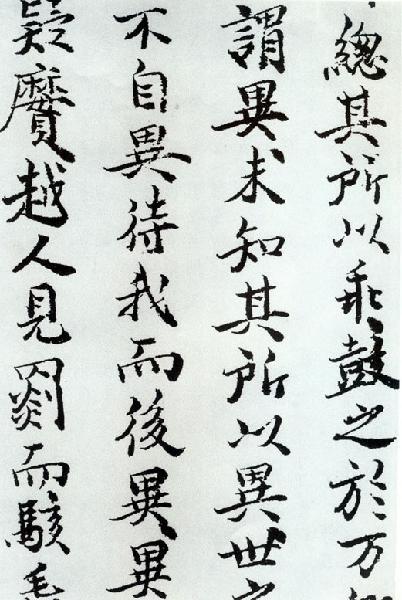 總其所以乖鼓之於万
謂異未知其所以異世
不自異待我而後異異
疑黂越人見罽而駭